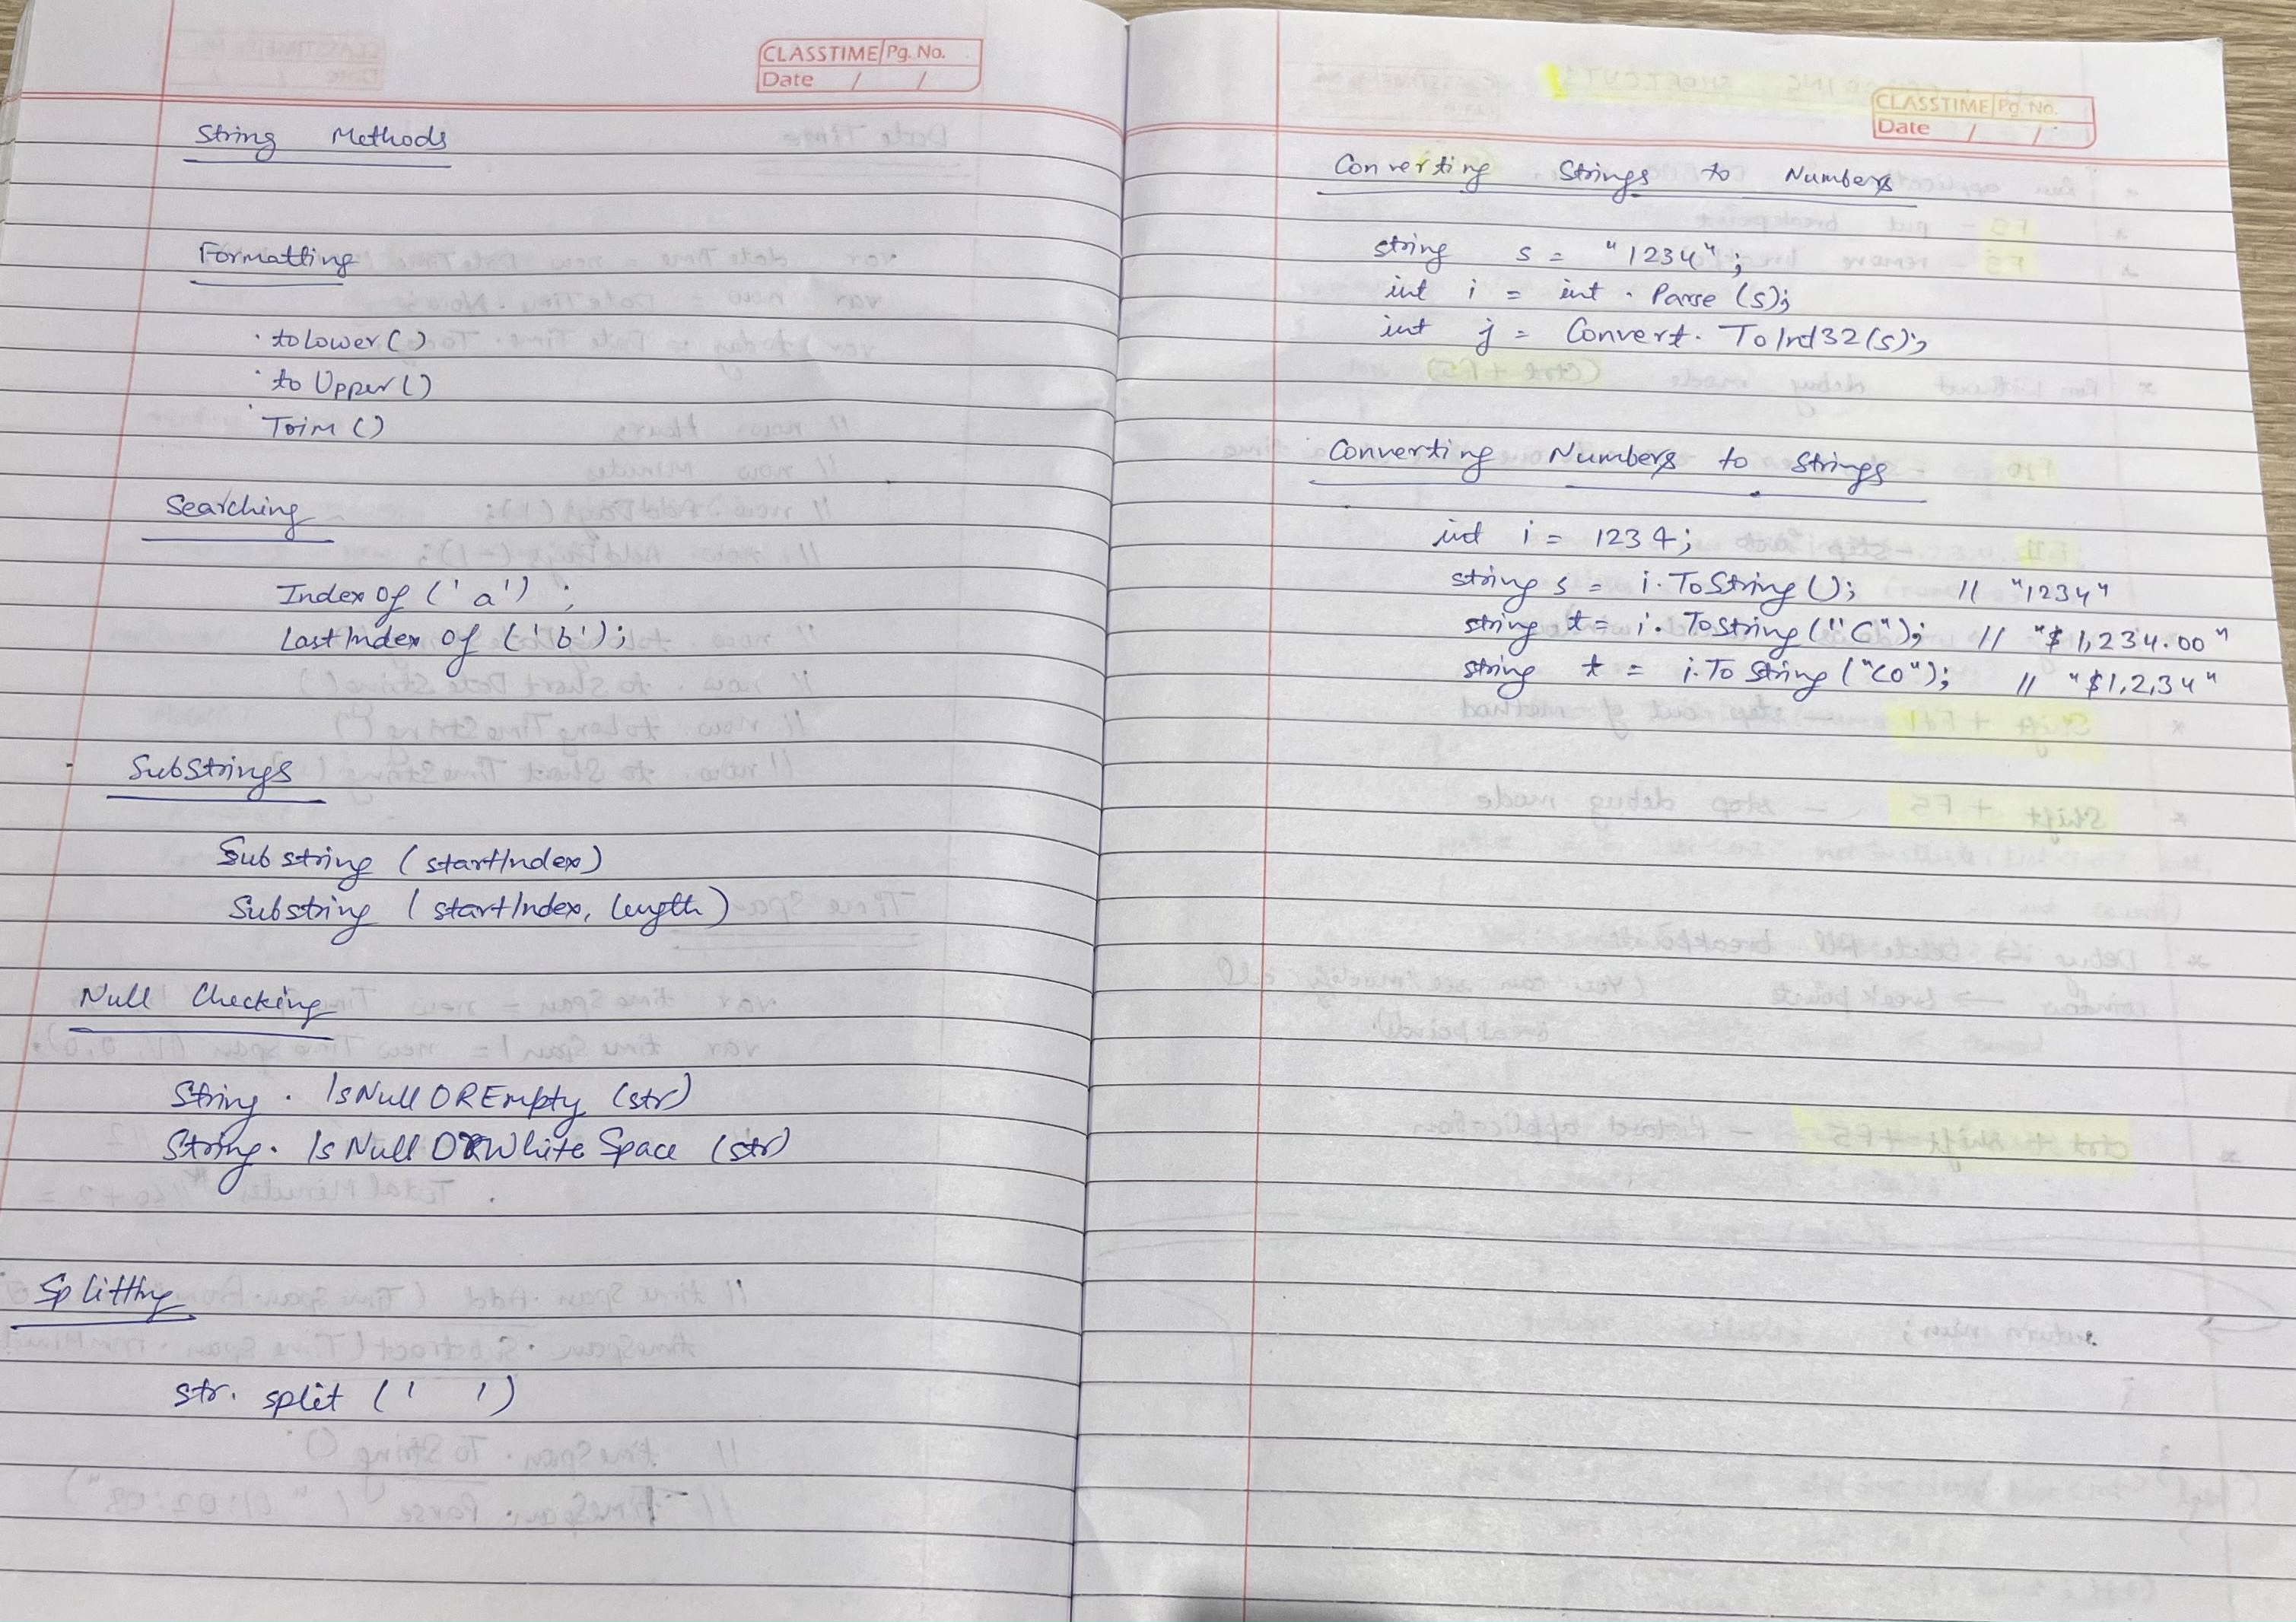 CLASSTIME Pg. No.
Date / /
String Methods
Formatting
· toLower()
· to Upper()
· Trim()
Searching
Index of ('a') ;
Last Index of ('b');
SubStrings
Substring (startIndex)
Substring (startIndex, length)
Null Checking
String. IsNullOREmpty (str)
String. IsNullOrWhite Space (str)
Splitting
str. split (' ')
CLASSTIME Pg. No.
Date / /
Converting Strings to Numbers
string s = "1234";
int i = int . Parse (s);
int j = Convert. ToInt32(s);
Converting Numbers to Strings
int i = 1234;
string s = i.ToString(); // "1234"
string t = i. ToString("C"); // "$1,234.00"
string t = i.To String ("C0"); // "$1,2,34"